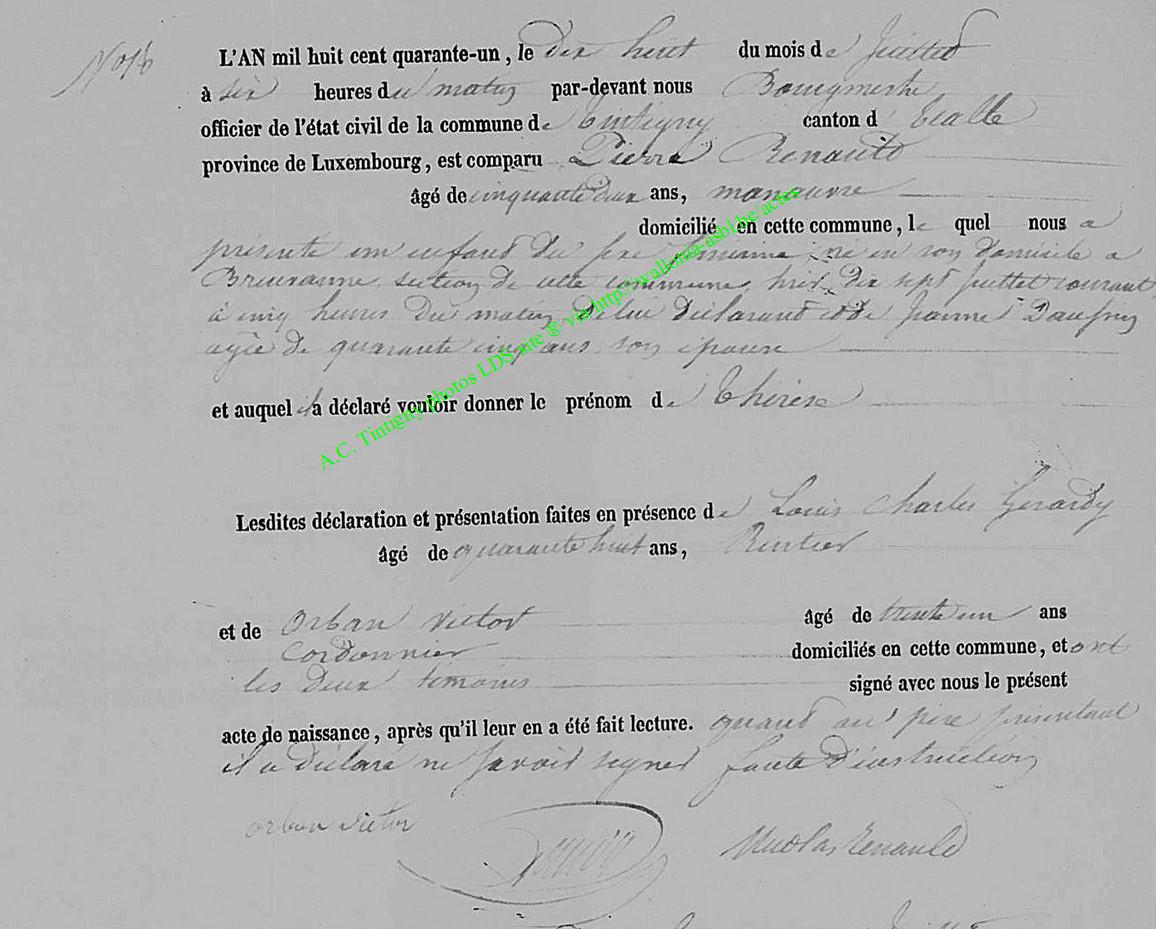 L'AN mil huit cent quarante-un, le dix huit du mois de Juillet
à six heures du matin par-devant nous Bourgmestre
officier de l'état civil de la commune de Tintigny canton d'Etalle
province de Luxembourg, est comparu Pierre Renauld
âgé de cinquante deux ans, manœuvre
domicilié en cette commune, lequel nous a
présenté un enfant du sexe féminin né en son domicile a
Breuvanne section de cette commune, hier dix sept Juillet courant
à cinq heures du matin, de lui déclarant et de Jeanne
agée de quarante cinq ans son épouse
et auquel il a déclaré vouloir donner le prénom de Thérèse
Lesdites déclaration et présentation faites en présence de Louis Charles Gerardy
âgé de quarante huit ans, Rentier
et de Orban Victor âgé de trente un ans
Cordonnier domiciliés en cette commune, et ont
les deux témoins signé avec nous le présent
acte de naissance, après qu'il leur en a été fait lecture. quand au père présentant
il a déclaré ne savoir signer faute d'instruction
orban victor Nicolas Renauld
A.C. Tintigny photos LDS site ® via http://wallonia-asbl.be/actes